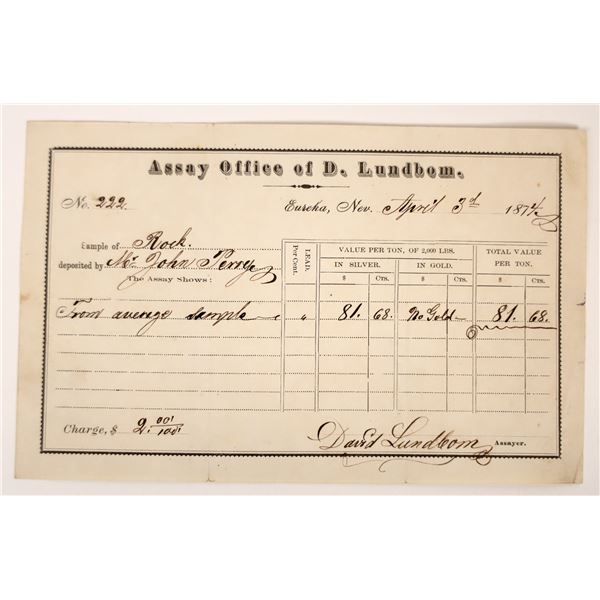 Assay Office of D. Lundbom.
No. 222.
Eureka, Nev. April 3d 1874.
Sample of Rock.
deposited by Mr John Perry
The Assay Shows:
LEAD. Per Cent.
VALUE PER TON, OF 2,000 LBS.
TOTAL VALUE PER TON.
IN SILVER. IN GOLD.
$ Cts. $ Cts. $ Cts.
From average sample " 81. 68. No Gold 81. 68.
Charge, $ 2.00/100
David Lundbom Assayer.